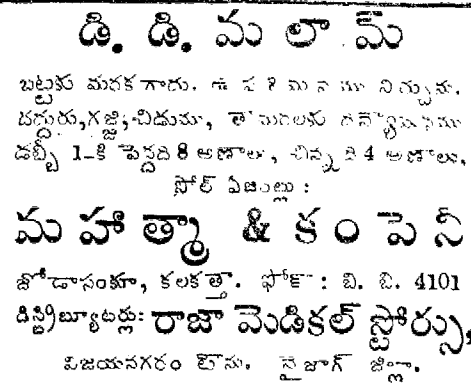 డి. డి. మలామ్
బట్టకు మరక గాదు. ఉపశమనము నిచ్చును.
దద్దురు, గజ్జి, చిడుము, తామరలకు దివ్యౌషధము
డబ్బీ 1-కి పెద్దది 8 అణాలు, చిన్నది 4 అణాలు,
సోల్ ఏజంట్లు :
మహాత్మా & కంపెనీ
జోడాసంకూ, కలకత్తా. ఫోన్ : బి. బి. 4101
డిస్ట్రిబ్యూటర్లు: రాజా మెడికల్ స్టోర్సు,
విజయనగరం టౌను. వైజాగ్ జిల్లా.